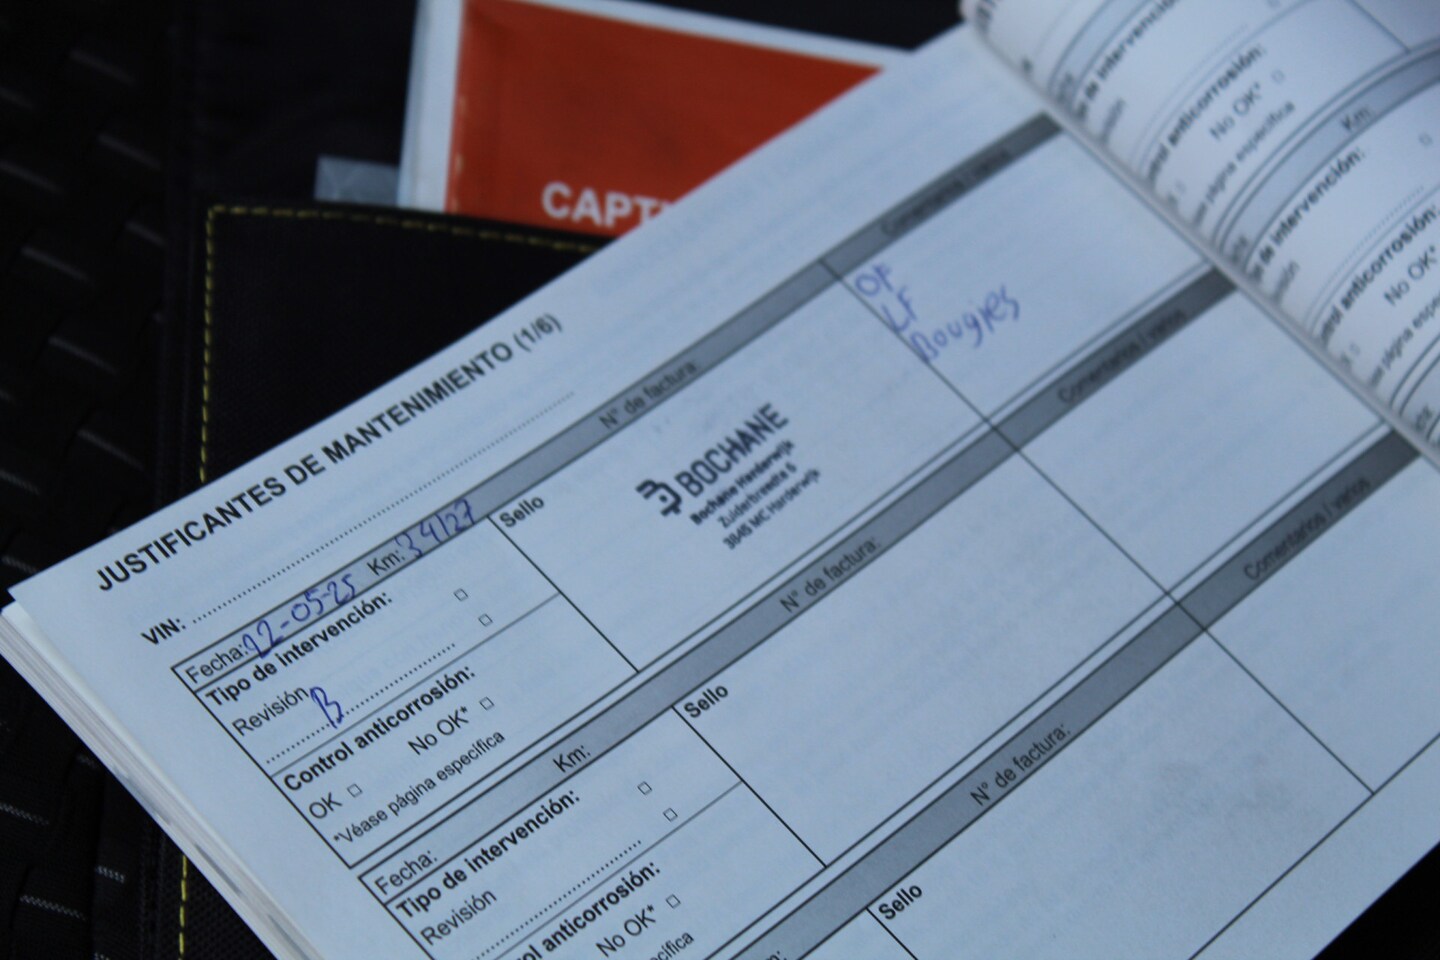 CAPT
JUSTIFICANTES DE MANTENIMIENTO (1/6)
VIN:
Fecha: 22-05-25 Km: 34127 N° de factura: Comentarios / varios
Tipo de intervención:
Revisión
B
Control anticorrosión:
OK No OK*
*Véase página específica
Sello
BOCHANE
Bochane Harderwijk
Zuiderbreedte 6
3845 MC Harderwijk
OF
LF
Bougies
Fecha: Km: N° de factura: Comentarios / varios
Tipo de intervención:
Revisión
ol anticorrosión:
No OK*
cífica
Sello
N° de factura: Comentarios / varios
Sello
de intervención:
anticorrosión:
No OK*
página específica
Km:
de intervención:
anticorrosión:
No OK*